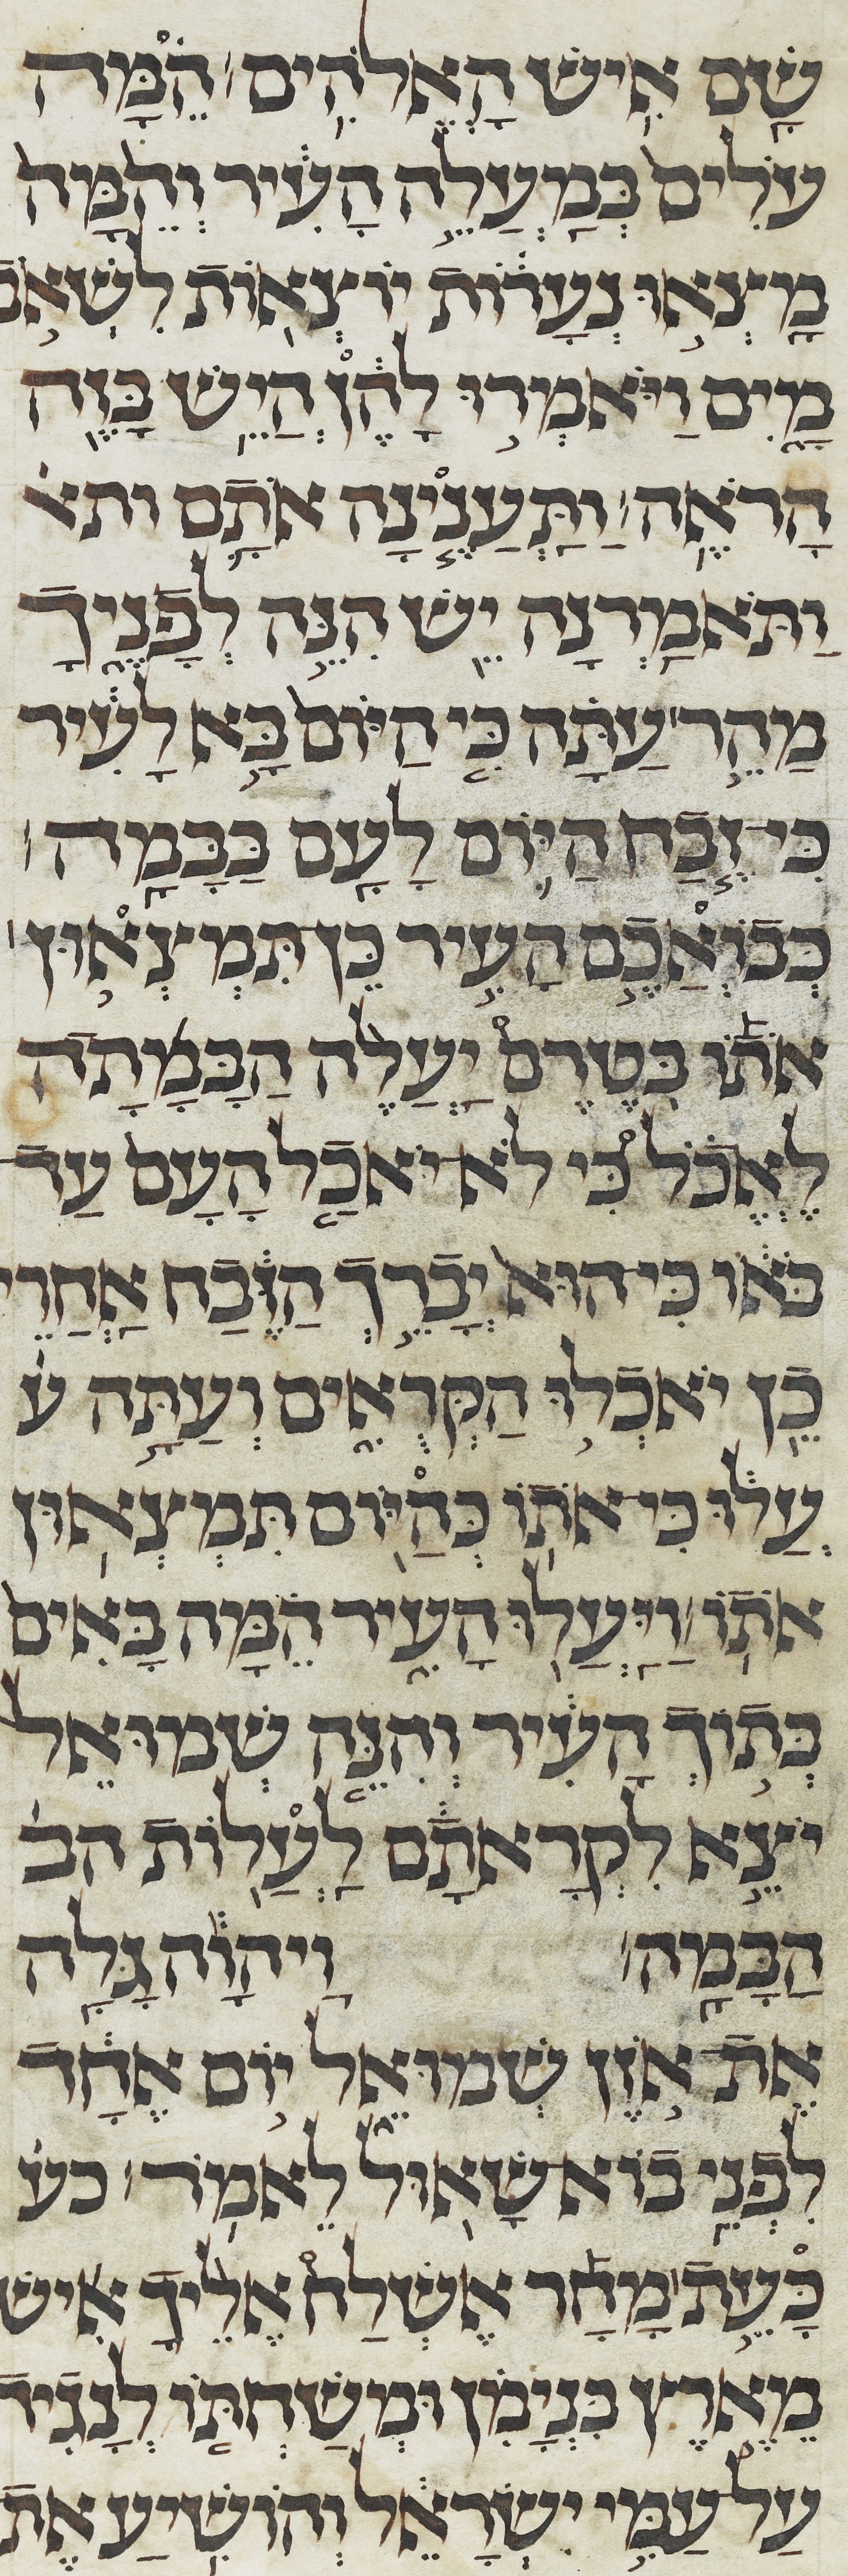 שָׁ֖ם אִ֥ישׁ הָאֱלֹהִֽים׃ הֵ֗מָּה
עֹלִים֙ בְּמַעֲלֵ֣ה הָעִ֔יר וְהֵ֙מָּה֙
מָצְא֣וּ נְעָר֔וֹת יֹצְא֖וֹת לִשְׁאֹ֣ב
מָ֑יִם וַיֹּאמְר֣וּ לָהֶ֔ן הֲיֵ֥שׁ בָּזֶ֖ה
הָרֹאֶֽה׃ וַתַּעֲנֶ֧ינָה אֹתָ֛ם ותא
וַתֹּאמַ֖רְנָה יֵּ֣שׁ הִנֵּ֣ה לְפָנֶ֑יךָ
מַהֵ֣ר׀ עַתָּ֗ה כִּ֤י הַיּוֹם֙ בָּ֣א לָעִ֔יר
כִּ֣י זֶ֧בַח הַיּ֛וֹם לָעָ֖ם בַּבָּמָֽה׃
כְּבֹאֲכֶ֣ם הָעִ֣יר כֵּ֣ן תִּמְצְא֣וּן
אֹת֡וֹ בְּטֶרֶם֩ יַעֲלֶ֨ה הַבָּמָ֜תָה
לֶאֱכֹ֗ל כִּ֠י לֹֽא־יֹאכַ֤ל הָעָם֙ עַד־
בֹּא֔וֹ כִּֽי־הוּא֙ יְבָרֵ֣ךְ הַזֶּ֔בַח אַחֲרֵי־
כֵ֖ן יֹאכְל֣וּ הַקְּרֻאִ֑ים וְעַתָּ֣ה ע
עֲל֔וּ כִּֽי־אֹת֥וֹ כְהַיּ֖וֹם תִּמְצְא֥וּן
אֹתֽוֹ׃ וַֽיַּעֲל֖וּ הָעִ֑יר הֵ֗מָּה בָּאִים֙
בְּת֣וֹךְ הָעִ֔יר וְהִנֵּ֤ה שְׁמוּאֵל֙
יֹצֵ֣א לִקְרָאתָ֔ם לַעֲל֖וֹת הב
הַבָּמָֽה׃ וַֽיהוָ֔ה גָּלָ֖ה
אֶת־אֹ֣זֶן שְׁמוּאֵ֑ל י֣וֹם אֶחָ֔ד
לִפְנֵ֥י בֽוֹא־שָׁא֖וּל לֵאמֹֽר׃ כע
כָּעֵ֣ת׀ מָחָ֡ר אֶשְׁלַח֩ אֵלֶ֨יךָ אִ֜ישׁ
מֵאֶ֣רֶץ בִּנְיָמִ֗ן וּמְשַׁחְתּ֤וֹ לְנָגִיד֙
עַל־עַמִּ֣י יִשְׂרָאֵ֔ל וְהוֹשִׁ֥יעַ אֶת־